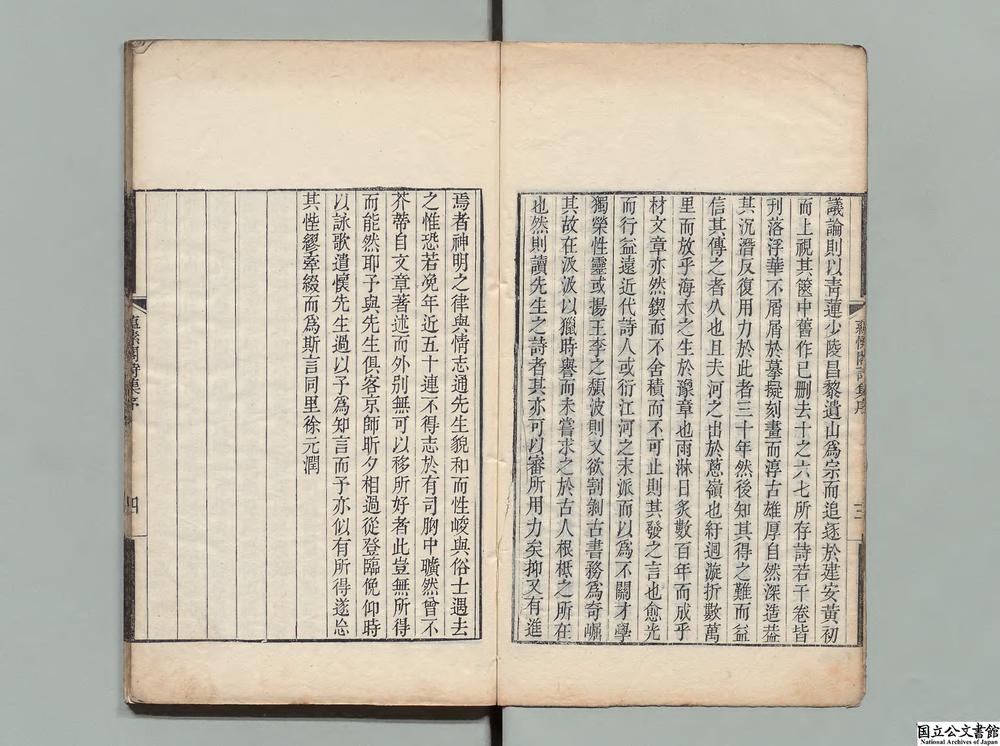 議論則以青蓮少陵昌黎遺山爲宗而追逐於建安黃初
而上視其篋中舊作已刪去十之六七所存詩若干卷皆
刊落浮華不屑屑於摹擬刻畫而淳古雄厚自然深造葢
其沉潛反復用力於此者三十年然後知其得之難而益
信其傳之者久也且夫河之出於蔥嶺也紆迴漩折數萬
里而放乎海木之生於豫章也雨淋日炙數百年而成乎
材文章亦然鍥而不舍積而不可止則其發之言也愈光
而行益遠近代詩人或衍江河之末派而以爲不關才學
獨榮性靈或揚王李之頹波則又欲割剝古書務爲奇崛
其故在汲汲以獵時譽而未嘗求之於古人根柢之所在
也然則讀先生之詩者其亦可以審所用力矣抑又有進
三
焉者神明之律與情志通先生貌和而性峻與俗士遇去
之惟恐若凂年近五十連不得志於有司胸中曠然曾不
芥蔕自文章著述而外別無可以移所好者此豈無所得
而能然耶予與先生俱客京師昕夕相過從登臨俛仰時
以詠歌遣懷先生過以予爲知言而予亦似有所得遂忘
其性繆牽綴而爲斯言同里徐元潤
詩集序
四
国立公文書館
National Archives of Japan